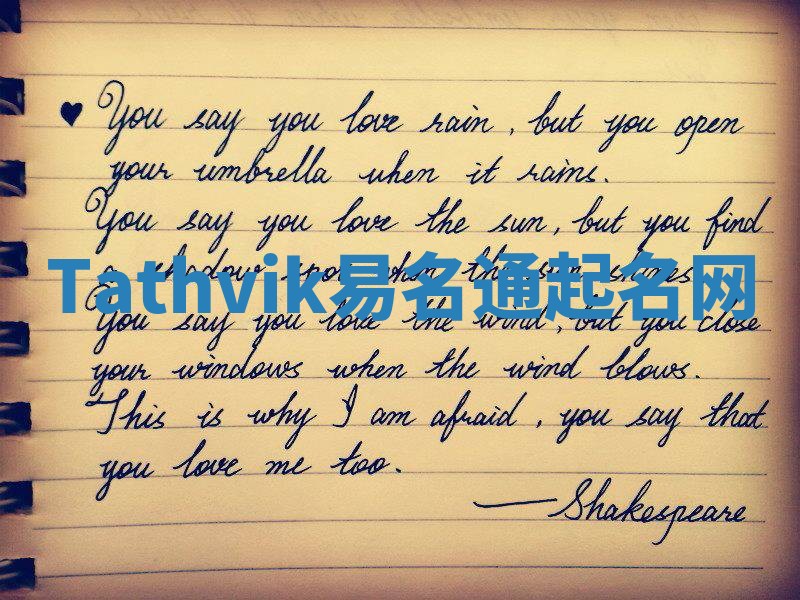 ♥ You say you love rain, but you open
your umbrella when it rains.
You say you love the sun, but you find
a shadow spot when the sun shines.
Tathvik易名通起名网
You say you love the wind, but you close
your windows when the wind blows.
This is why I am afraid, you say that
you love me too.
—Shakespeare